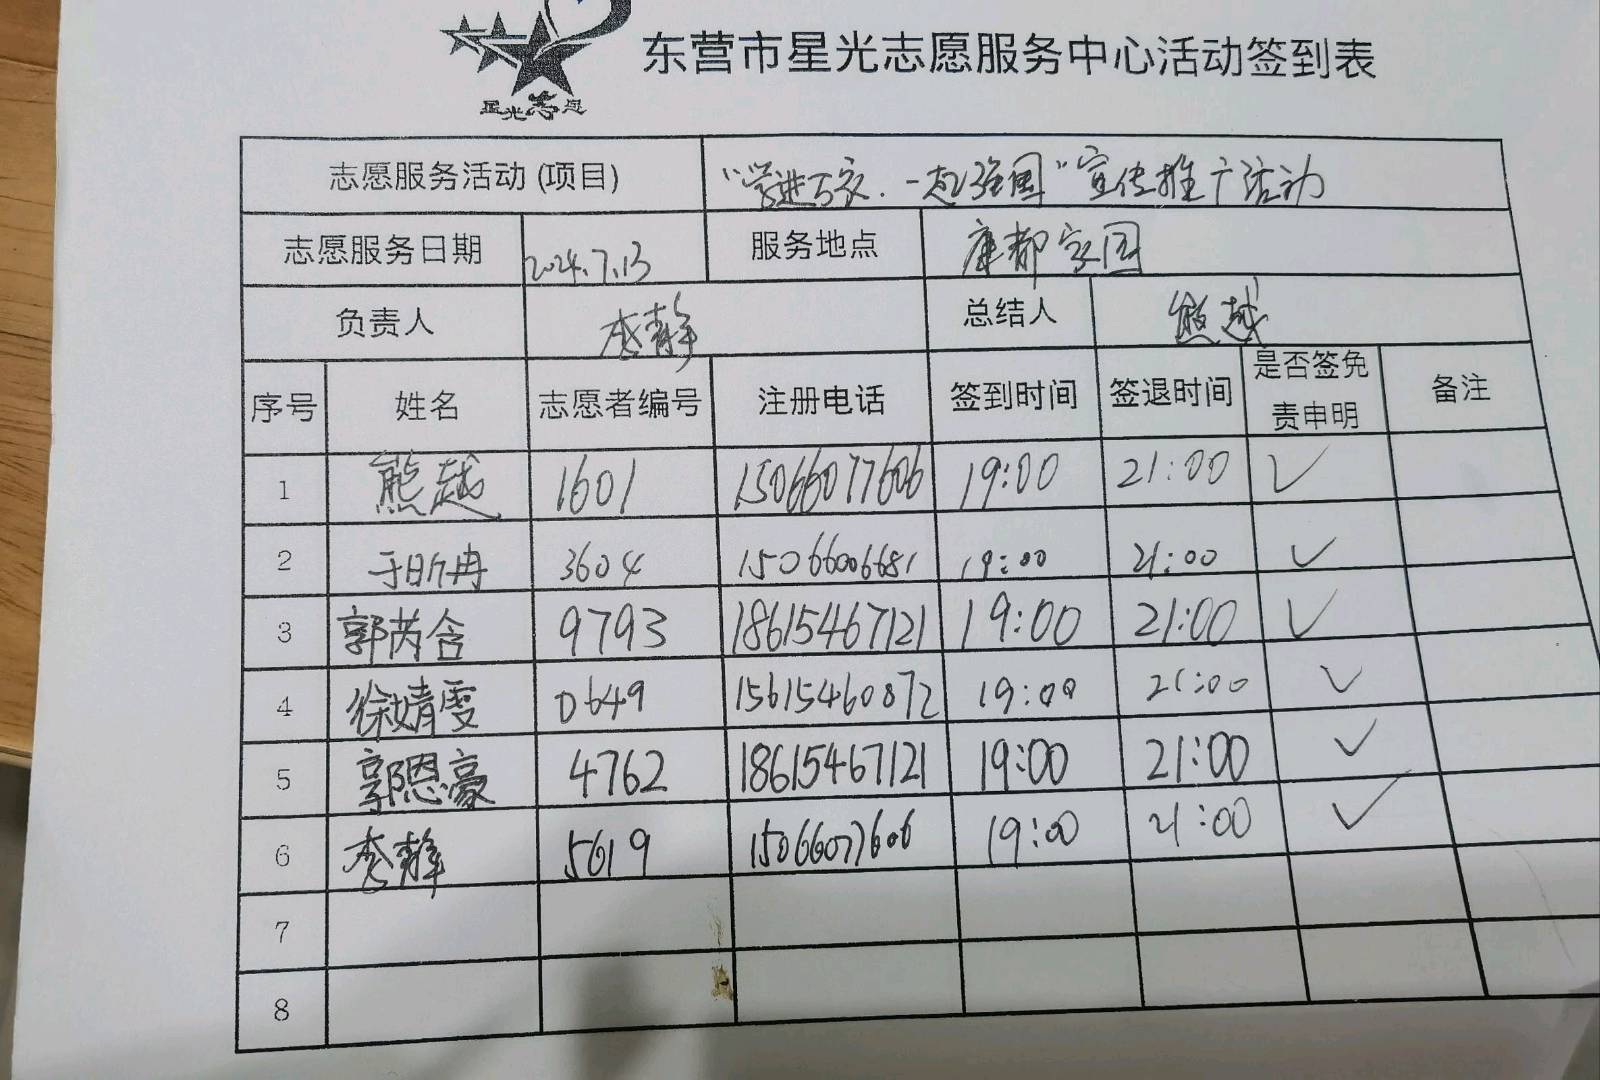 星光志愿
东营市星光志愿服务中心活动签到表
志愿服务活动 (项目) "学进万家.一起强国"宣传推广活动
志愿服务日期 2024.7.13 服务地点 康都家园
负责人 李静 总结人 熊越
序号 姓名 志愿者编号 注册电话 签到时间 签退时间 是否签免责申明 备注
1 熊越 1601 15066077606 19:00 21:00 ✓
2 于昕冉 3604 15066006681 19:00 21:00 ✓
3 郭芮含 9793 18615467121 19:00 21:00 ✓
4 徐婧雯 0649 15615460872 19:00 21:00 ✓
5 郭恩豪 4762 18615467121 19:00 21:00 ✓
6 李静 5619 15066077606 19:00 21:00 ✓
7
8